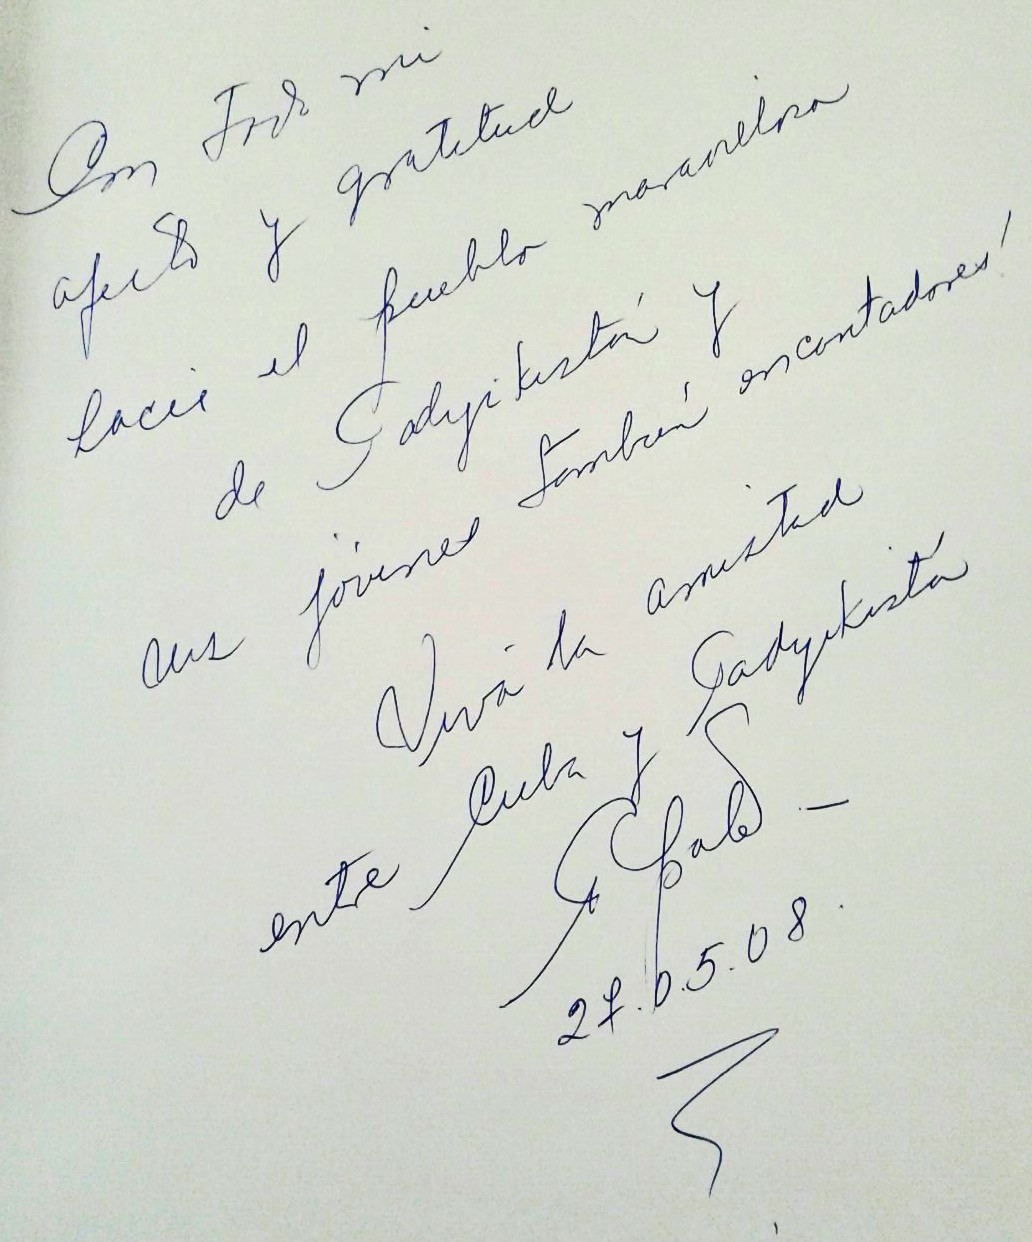 Con todo mi
afecto y gratitud
hacia el pueblo maravilloso
de Tadyikistán y
sus jóvenes también encantadores!
Viva la amistad
entre Cuba y Tadyikistá
27.05.08.